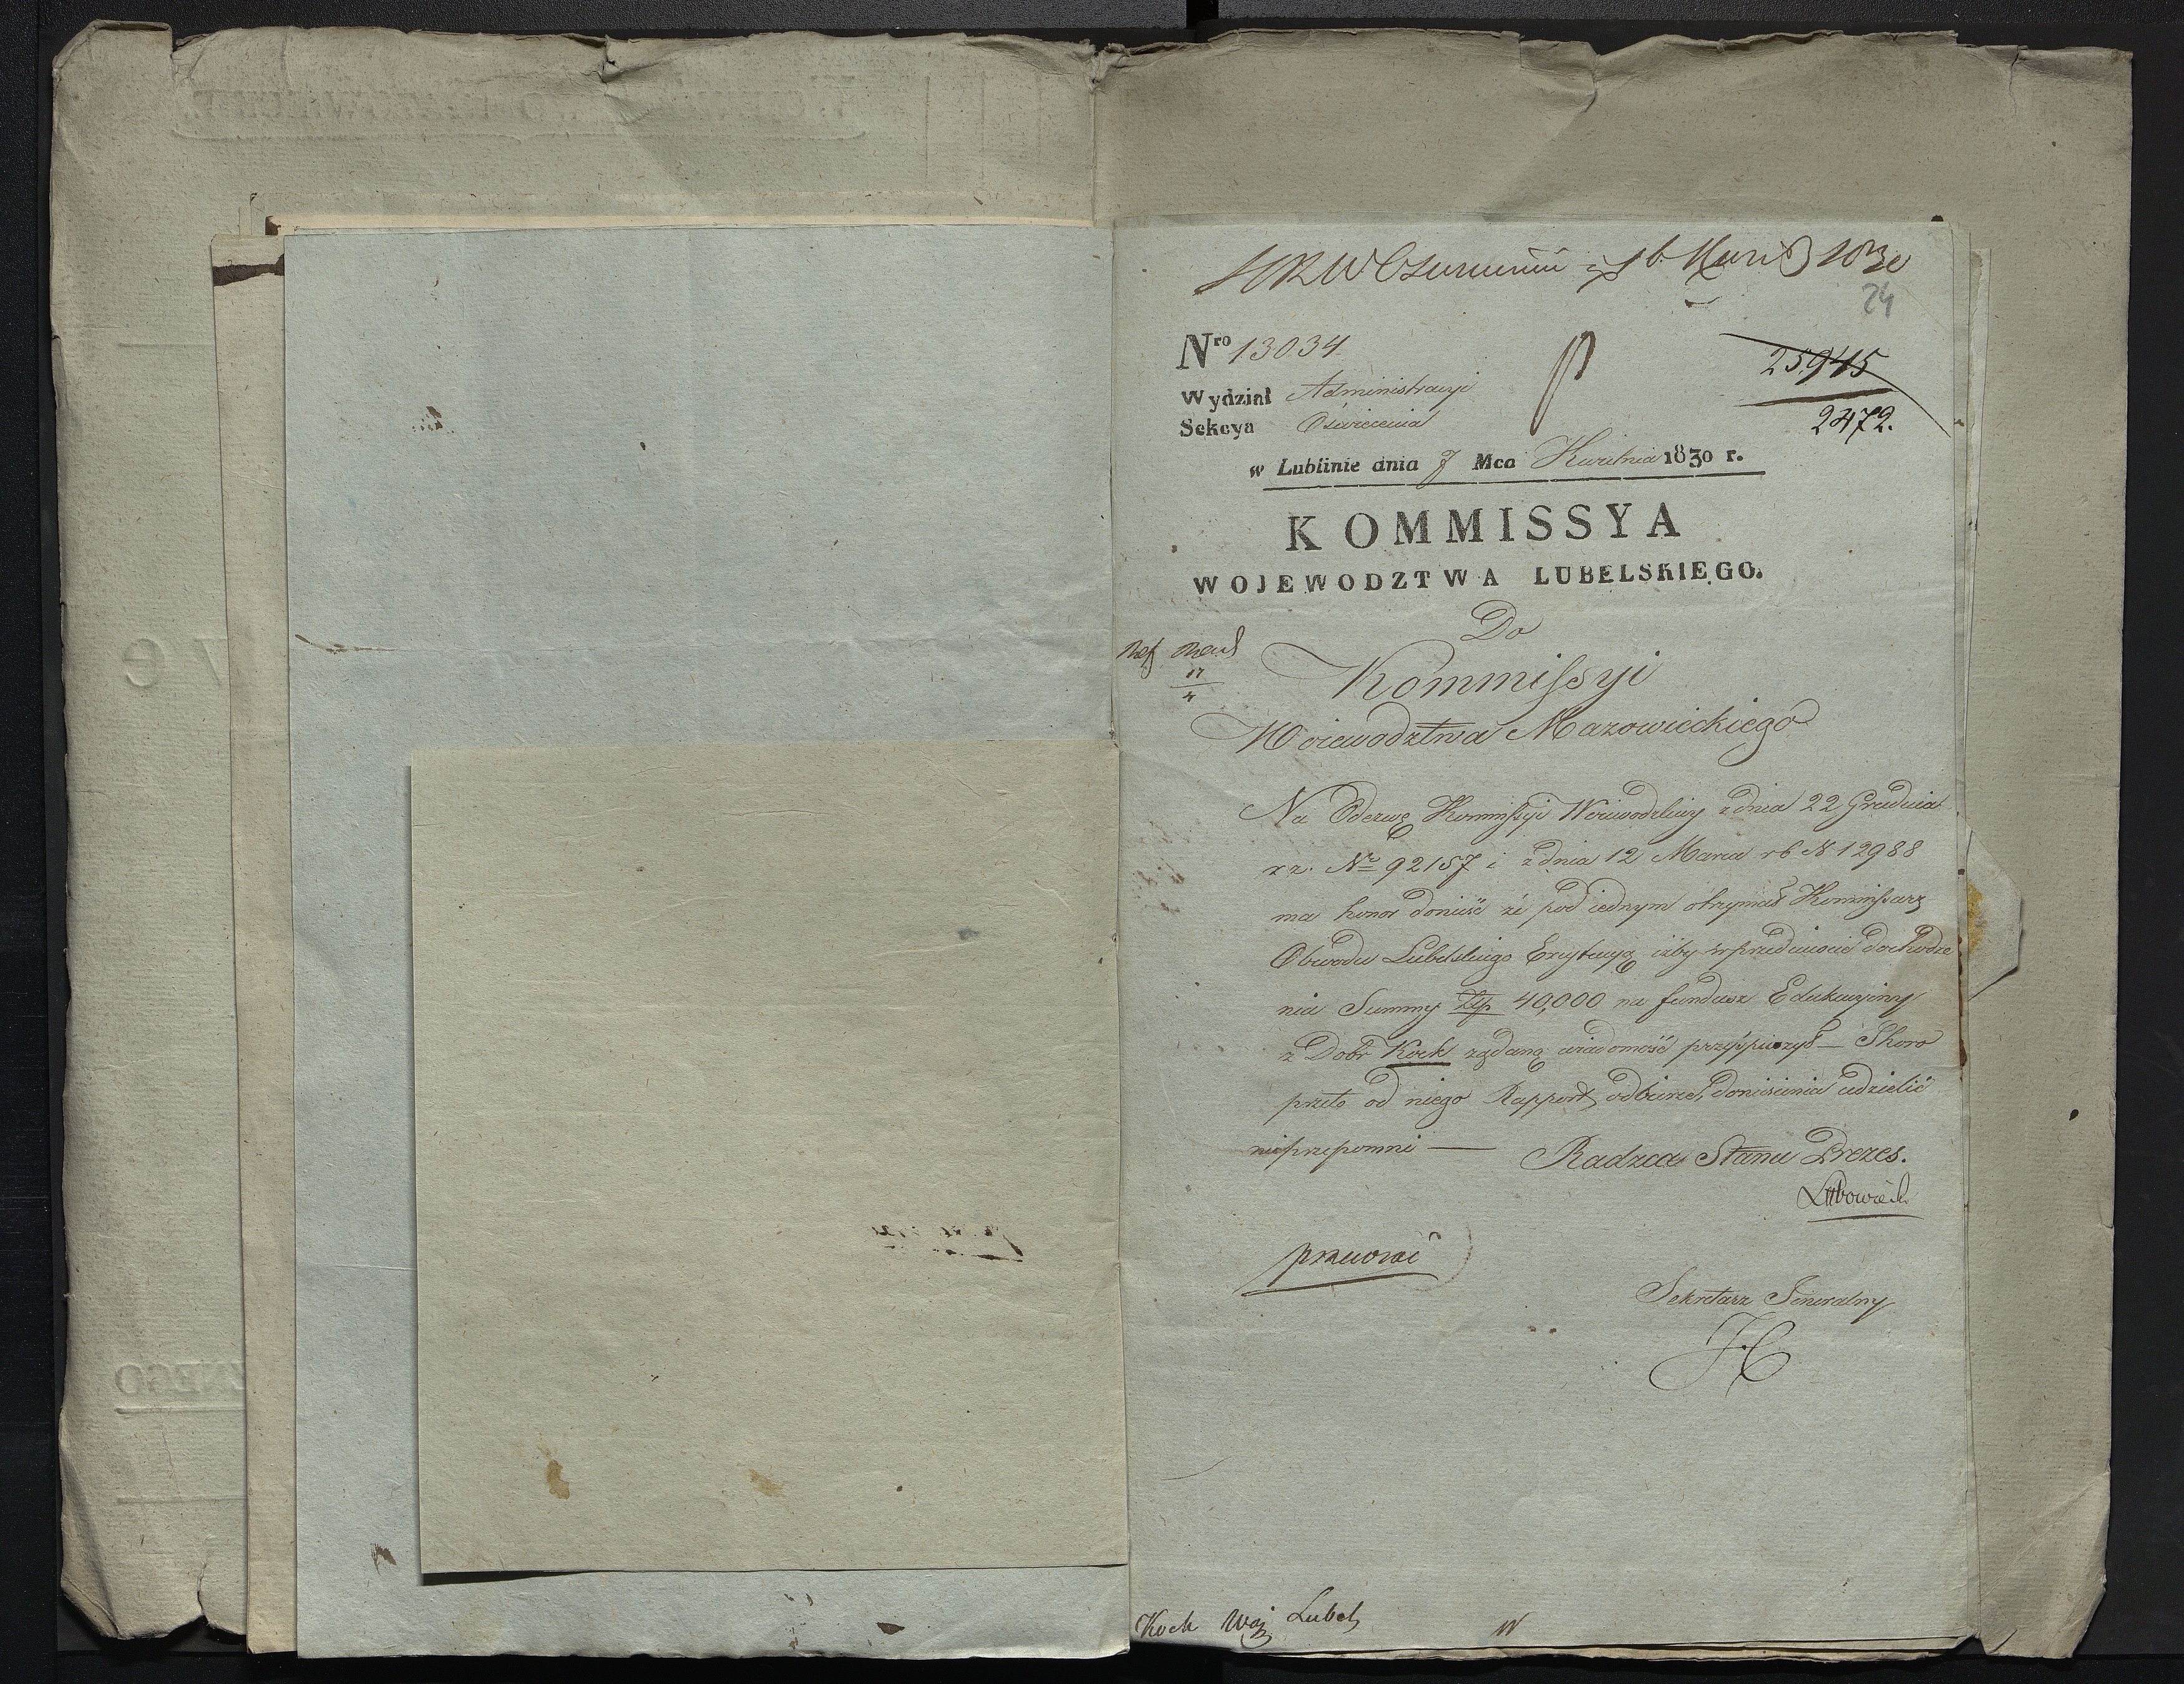 24
Nro 13034
25,945
Wydział Administracyi
2472.
Sekcya Oświecenia
w Lublinie dnia 7 Mca Kwietnia 1830 r.
KOMMISSYA
WOJEWODZTWA LUBELSKIEGO.
Do
Kommissyi
Woiewodztwa Mazowieckiego
17
4
Na Odezwę Kommissyi Woiewodzkiey z dnia 22 Grudnia
r z. No 92157 i z dnia 12 Marca r b N 12988
ma honor donieść że pod iednym otrzymał Kommissarz
Obwodu Lubelskiego iżby w przedmiocie dochodze
nia Summy Złp 40,000 na fundusz Edukacyiny
z Dobr Kock żądaną wiadomość przyśpieszył — Skoro
przeto od niego Rapport odbierze, doniesienia udzielić
nieprzepomni —
Radzca Stanu Prezes.
Sekretarz Jeneralny
Kock Woj Lubel